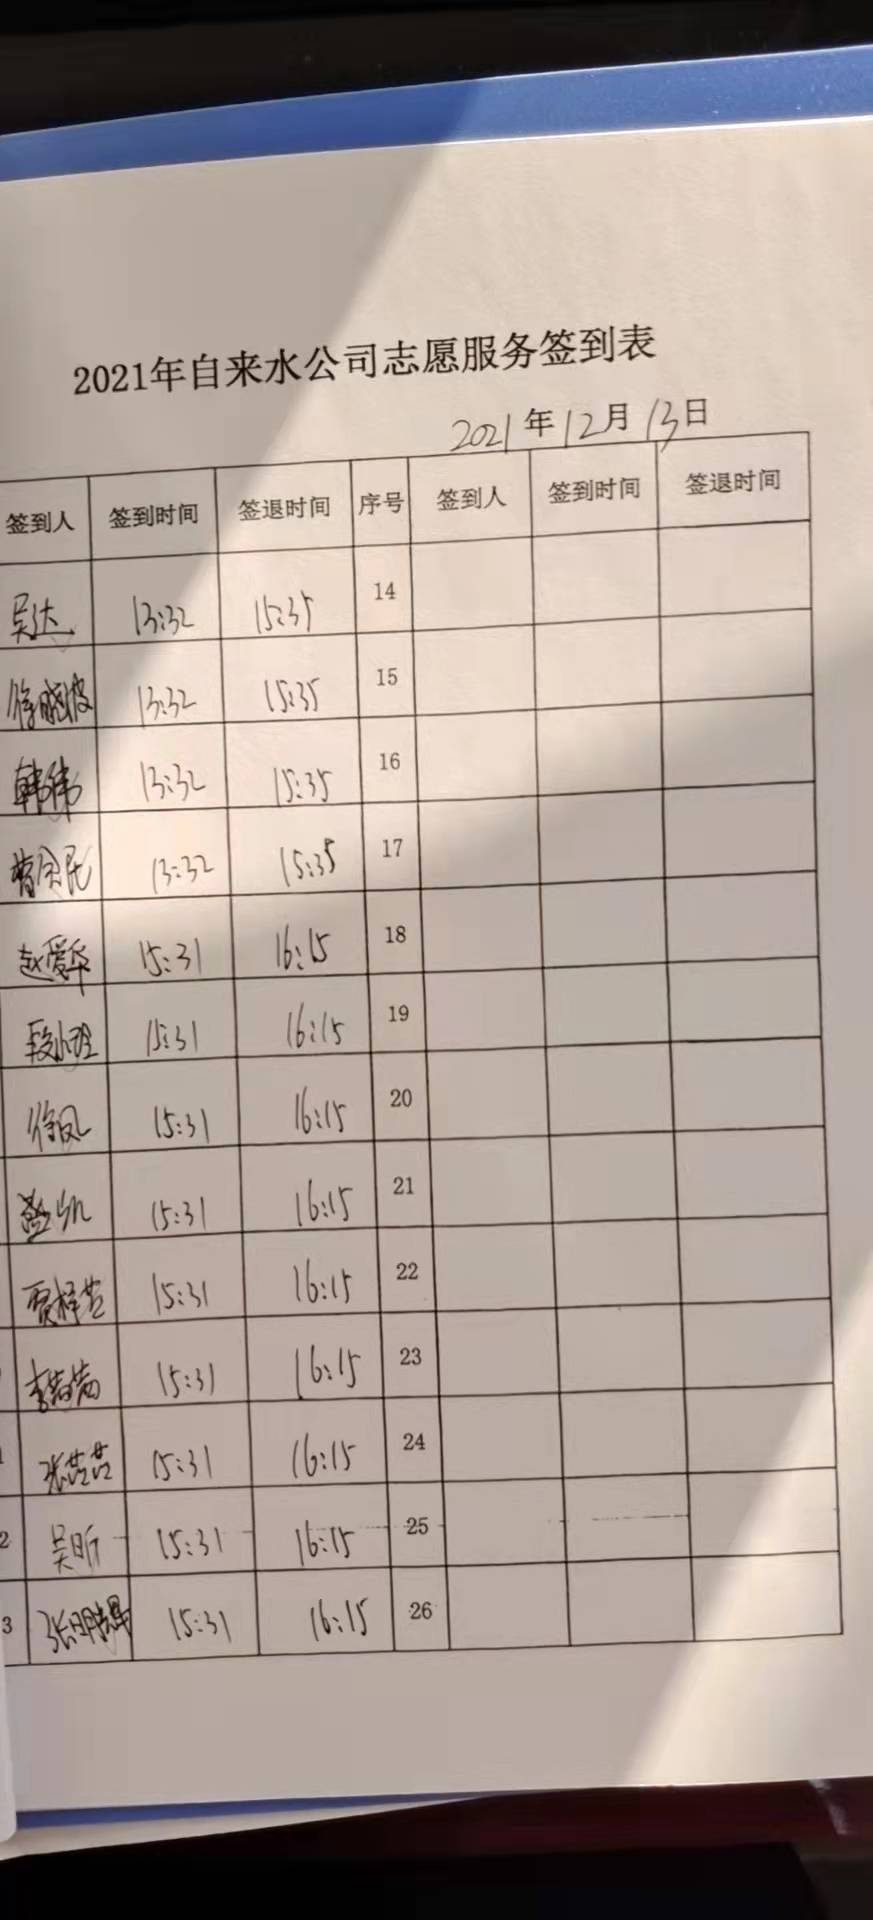 2021年自来水公司志愿服务签到表
2021年12月13日
签到人 签到时间 签退时间 序号 签到人 签到时间 签退时间
吴达 13:32 15:35 14
徐晓波 13:32 15:35 15
韩伟 13:32 15:35 16
曹国民 13:32 15:35 17
赵爱华 15:31 16:15 18
段 15:31 16:15 19
徐凤 15:31 16:15 20
15:31 16:15 21
贾梓芸 15:31 16:15 22
李 15:31 16:15 23
张芸芸 15:31 16:15 24
2 吴昕 15:31 16:15 25
3 张明辉 15:31 16:15 26